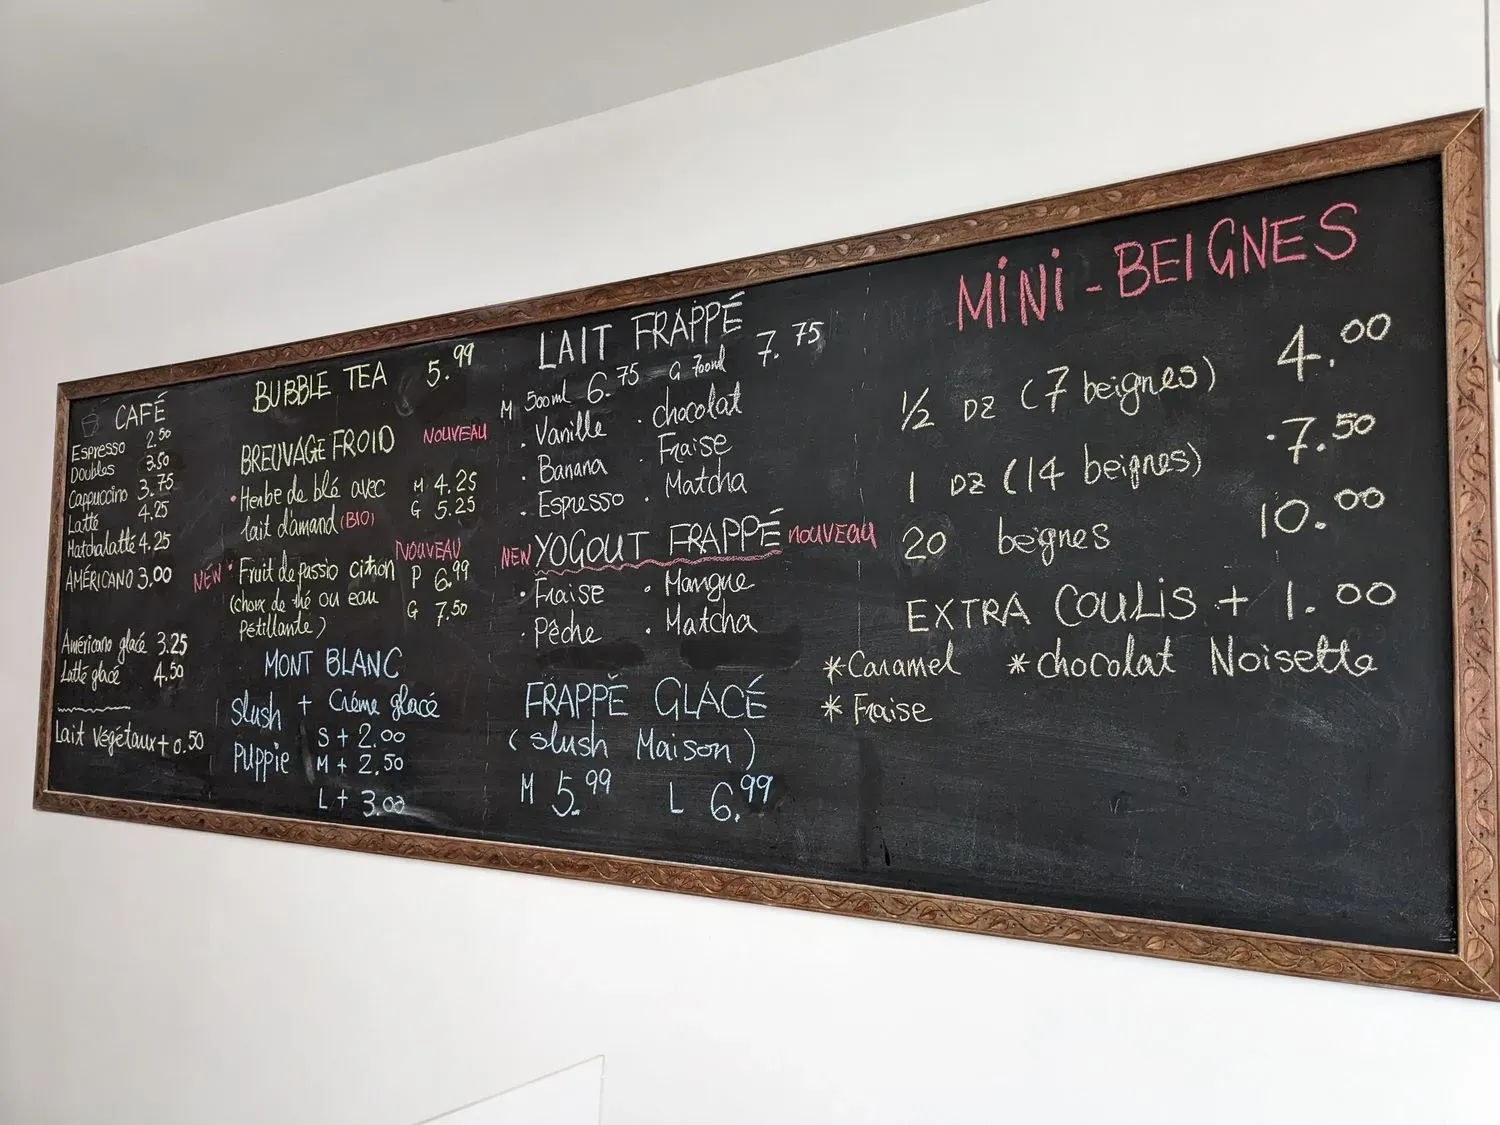 CAFÉ
Espresso 2.50
Doubles 3.50
Cappuccino 3.75
Latté 4.25
Matchalatté 4.25
AMÉRICANO 3.00
Américano glacé 3.25
Latté glacé 4.50
Lait végétaux + 0.50
BUBBLE TEA 5.99
BREUVAGE FROID NOUVEAU
• Herbe de blé avec M 4.25
lait d'amand (BIO) G 5.25
NOUVEAU
NEW • Fruit de passio citron P 6.99
(choix de thé ou eau G 7.50
pétillante)
MONT BLANC
slush + Crème glacé
S + 2.00
Puppie M + 2.50
L + 3.00
LAIT FRAPPÉ
M 500ml 6.75 G 700ml 7.75
. Vanille . chocolat
. Banana . Fraise
. Espresso . Matcha
NEW YOGOUT FRAPPÉ NOUVEAU
. Fraise . Mangue
. Pêche . Matcha
FRAPPÉ GLACÉ
(slush Maison)
M 5.99 L 6.99
MINI-BEIGNES
1/2 DZ (7 beignes) 4.00
1 DZ (14 beignes) .7.50
20 beignes 10.00
EXTRA COULIS + 1.00
*Caramel *chocolat Noisette
* Fraise